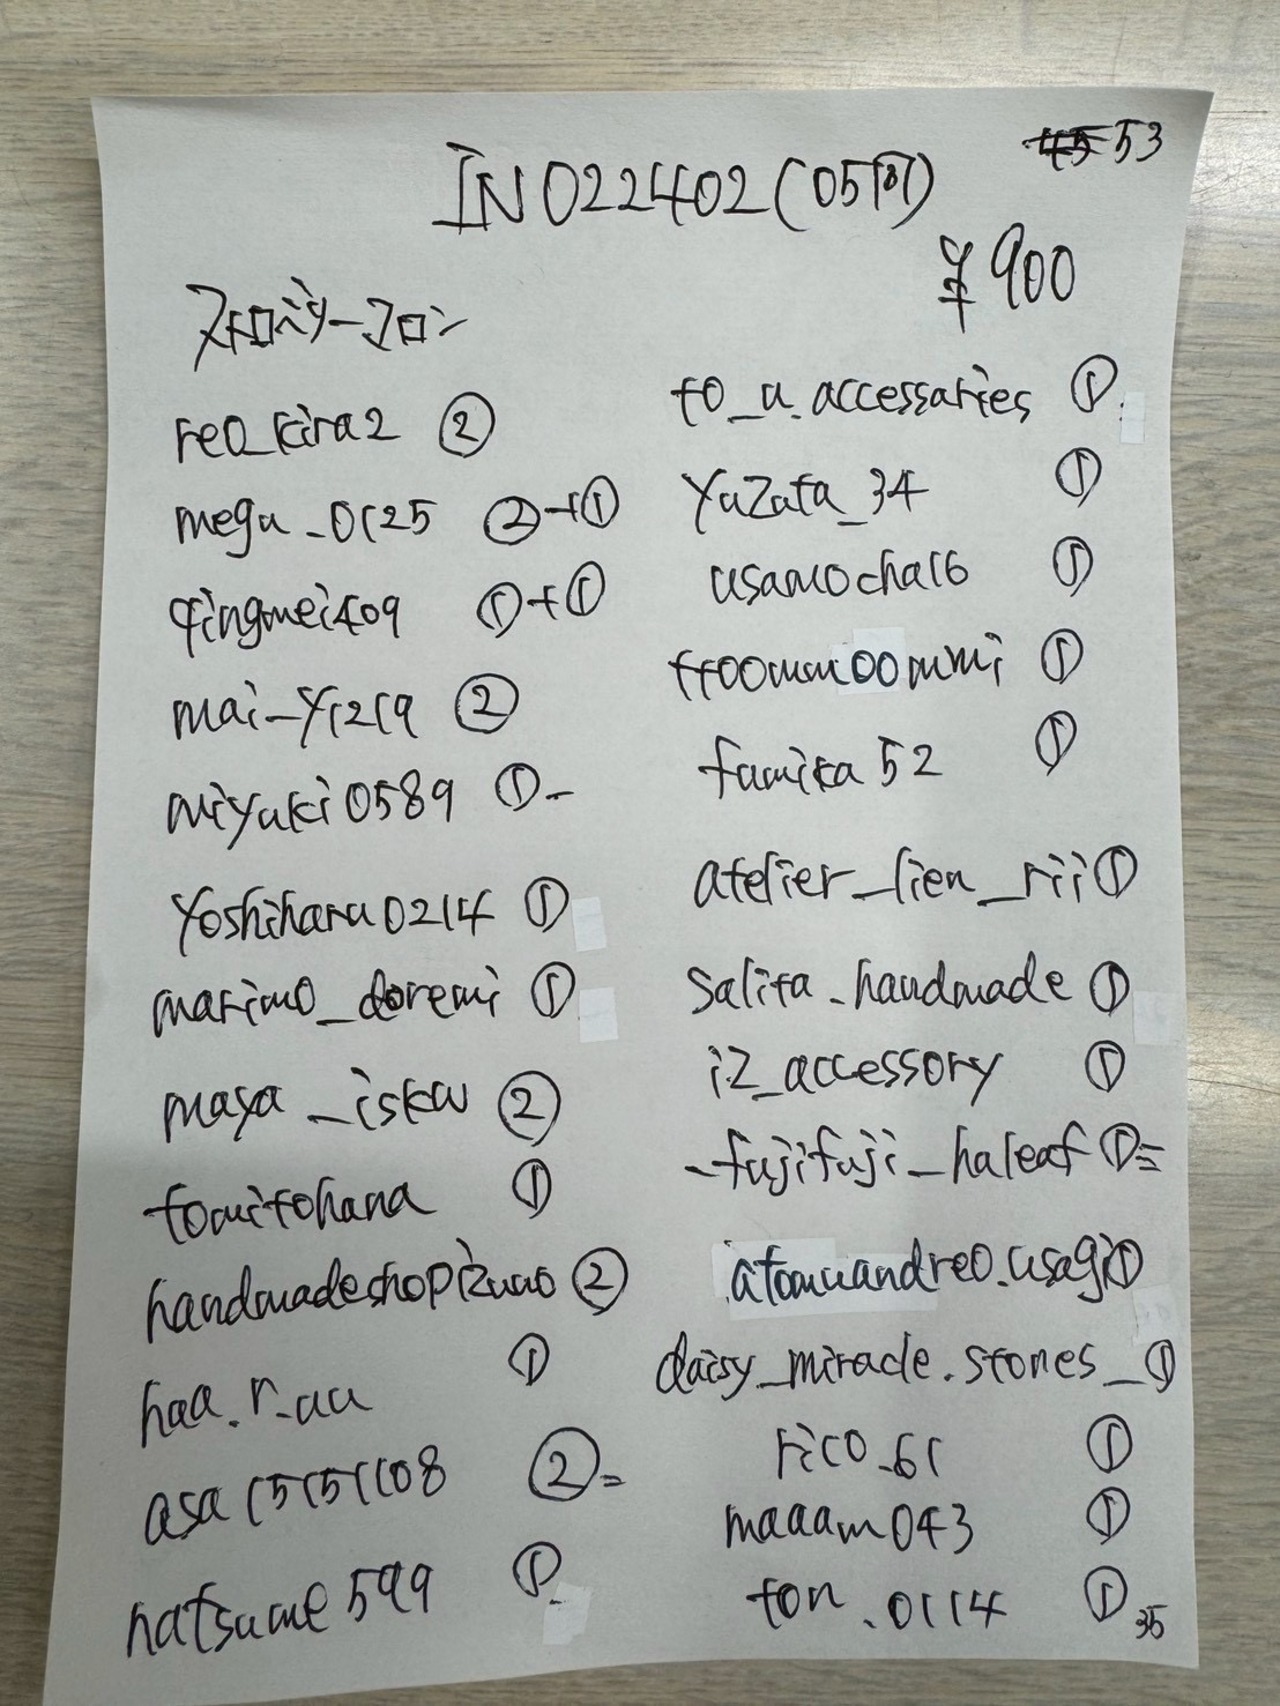 53
IN022402(05团)
¥900
ストロベリーコロン
reo_kira2 ②
megu_0125 ②+①
qingmei409 ①+①
mai_y1219 ②
miyuki0589 ①-
yoshiharu0214 ①
marimo_doremi ①
maya_iskw ②
tomitohana ①
handmadeshopizumo ②
haa.r.au ①
asa15151108 ②=
natsume599 ①
to_u.accessaries ①
yuzuta_34 ①
usamocha16 ①
ttoomm00mmi ①
fumika52 ①
atelier_lien_rii ①
salita_handmade ①
iz_accessory ①
_fujifuji_haleaf ①=
atomuandreo.usagi ①
daisy_miracle.stones_ ①
rico_61 ①
maaam043 ①
ton.0114 ①
35